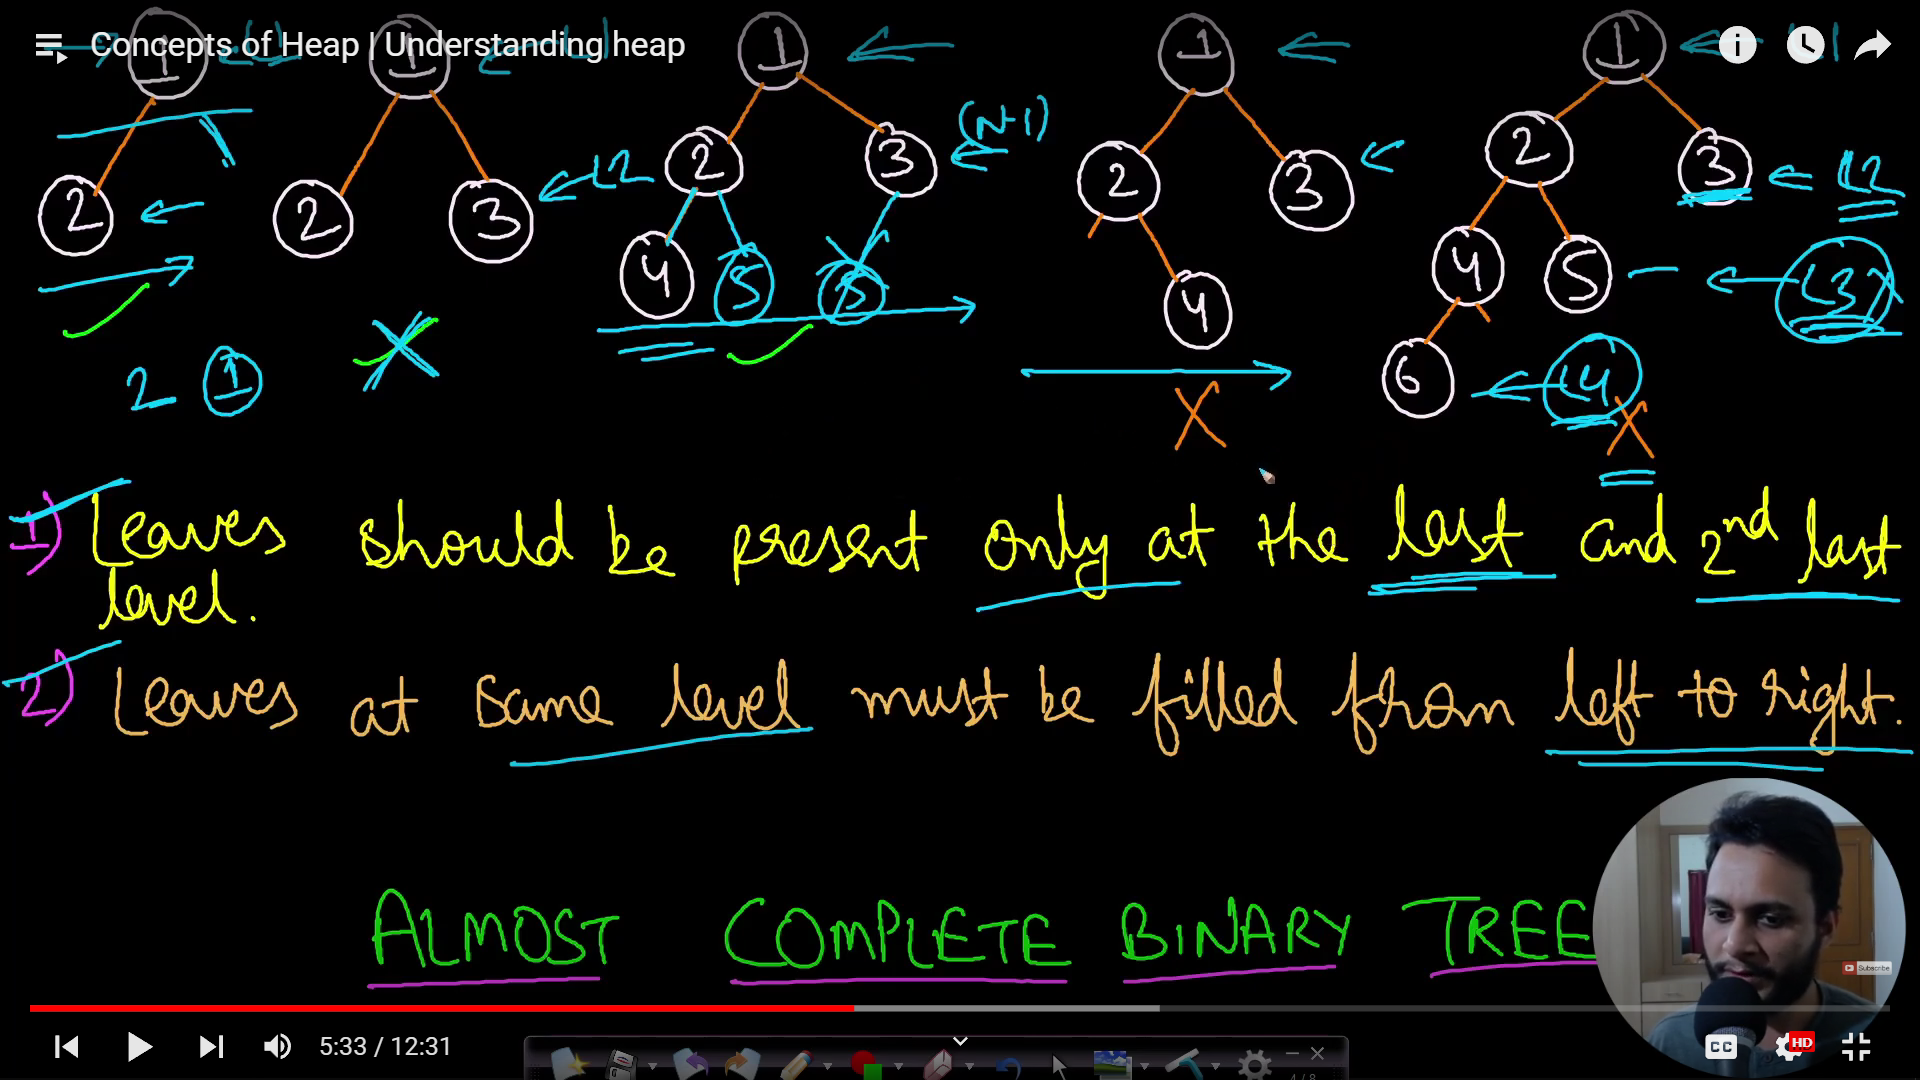 Concepts of Heap | Understanding heap
1 1 1 1 1
2 2 3 L2 2 3 (N-1) 2 3 2 3 L2
4 5 5 4 4 5 L3
2 1 6 L4
1) Leaves should be present only at the last and 2nd last
level.
2) Leaves at same level must be filled from left to right.
ALMOST COMPLETE BINARY TREE
Subscribe
5:33 / 12:31
CC HD
4/8